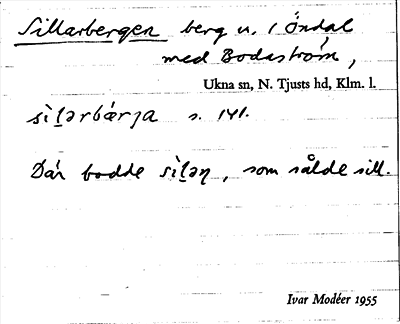 Sillarbergen berg u. / Öndal
med Bodaström,
Ukna sn, N. Tjusts hd, Klm. l.
sìḷərbǽrja s. 141.
Där bodde sìḷəɳ, som sålde sill.
Ivar Modéer 1955